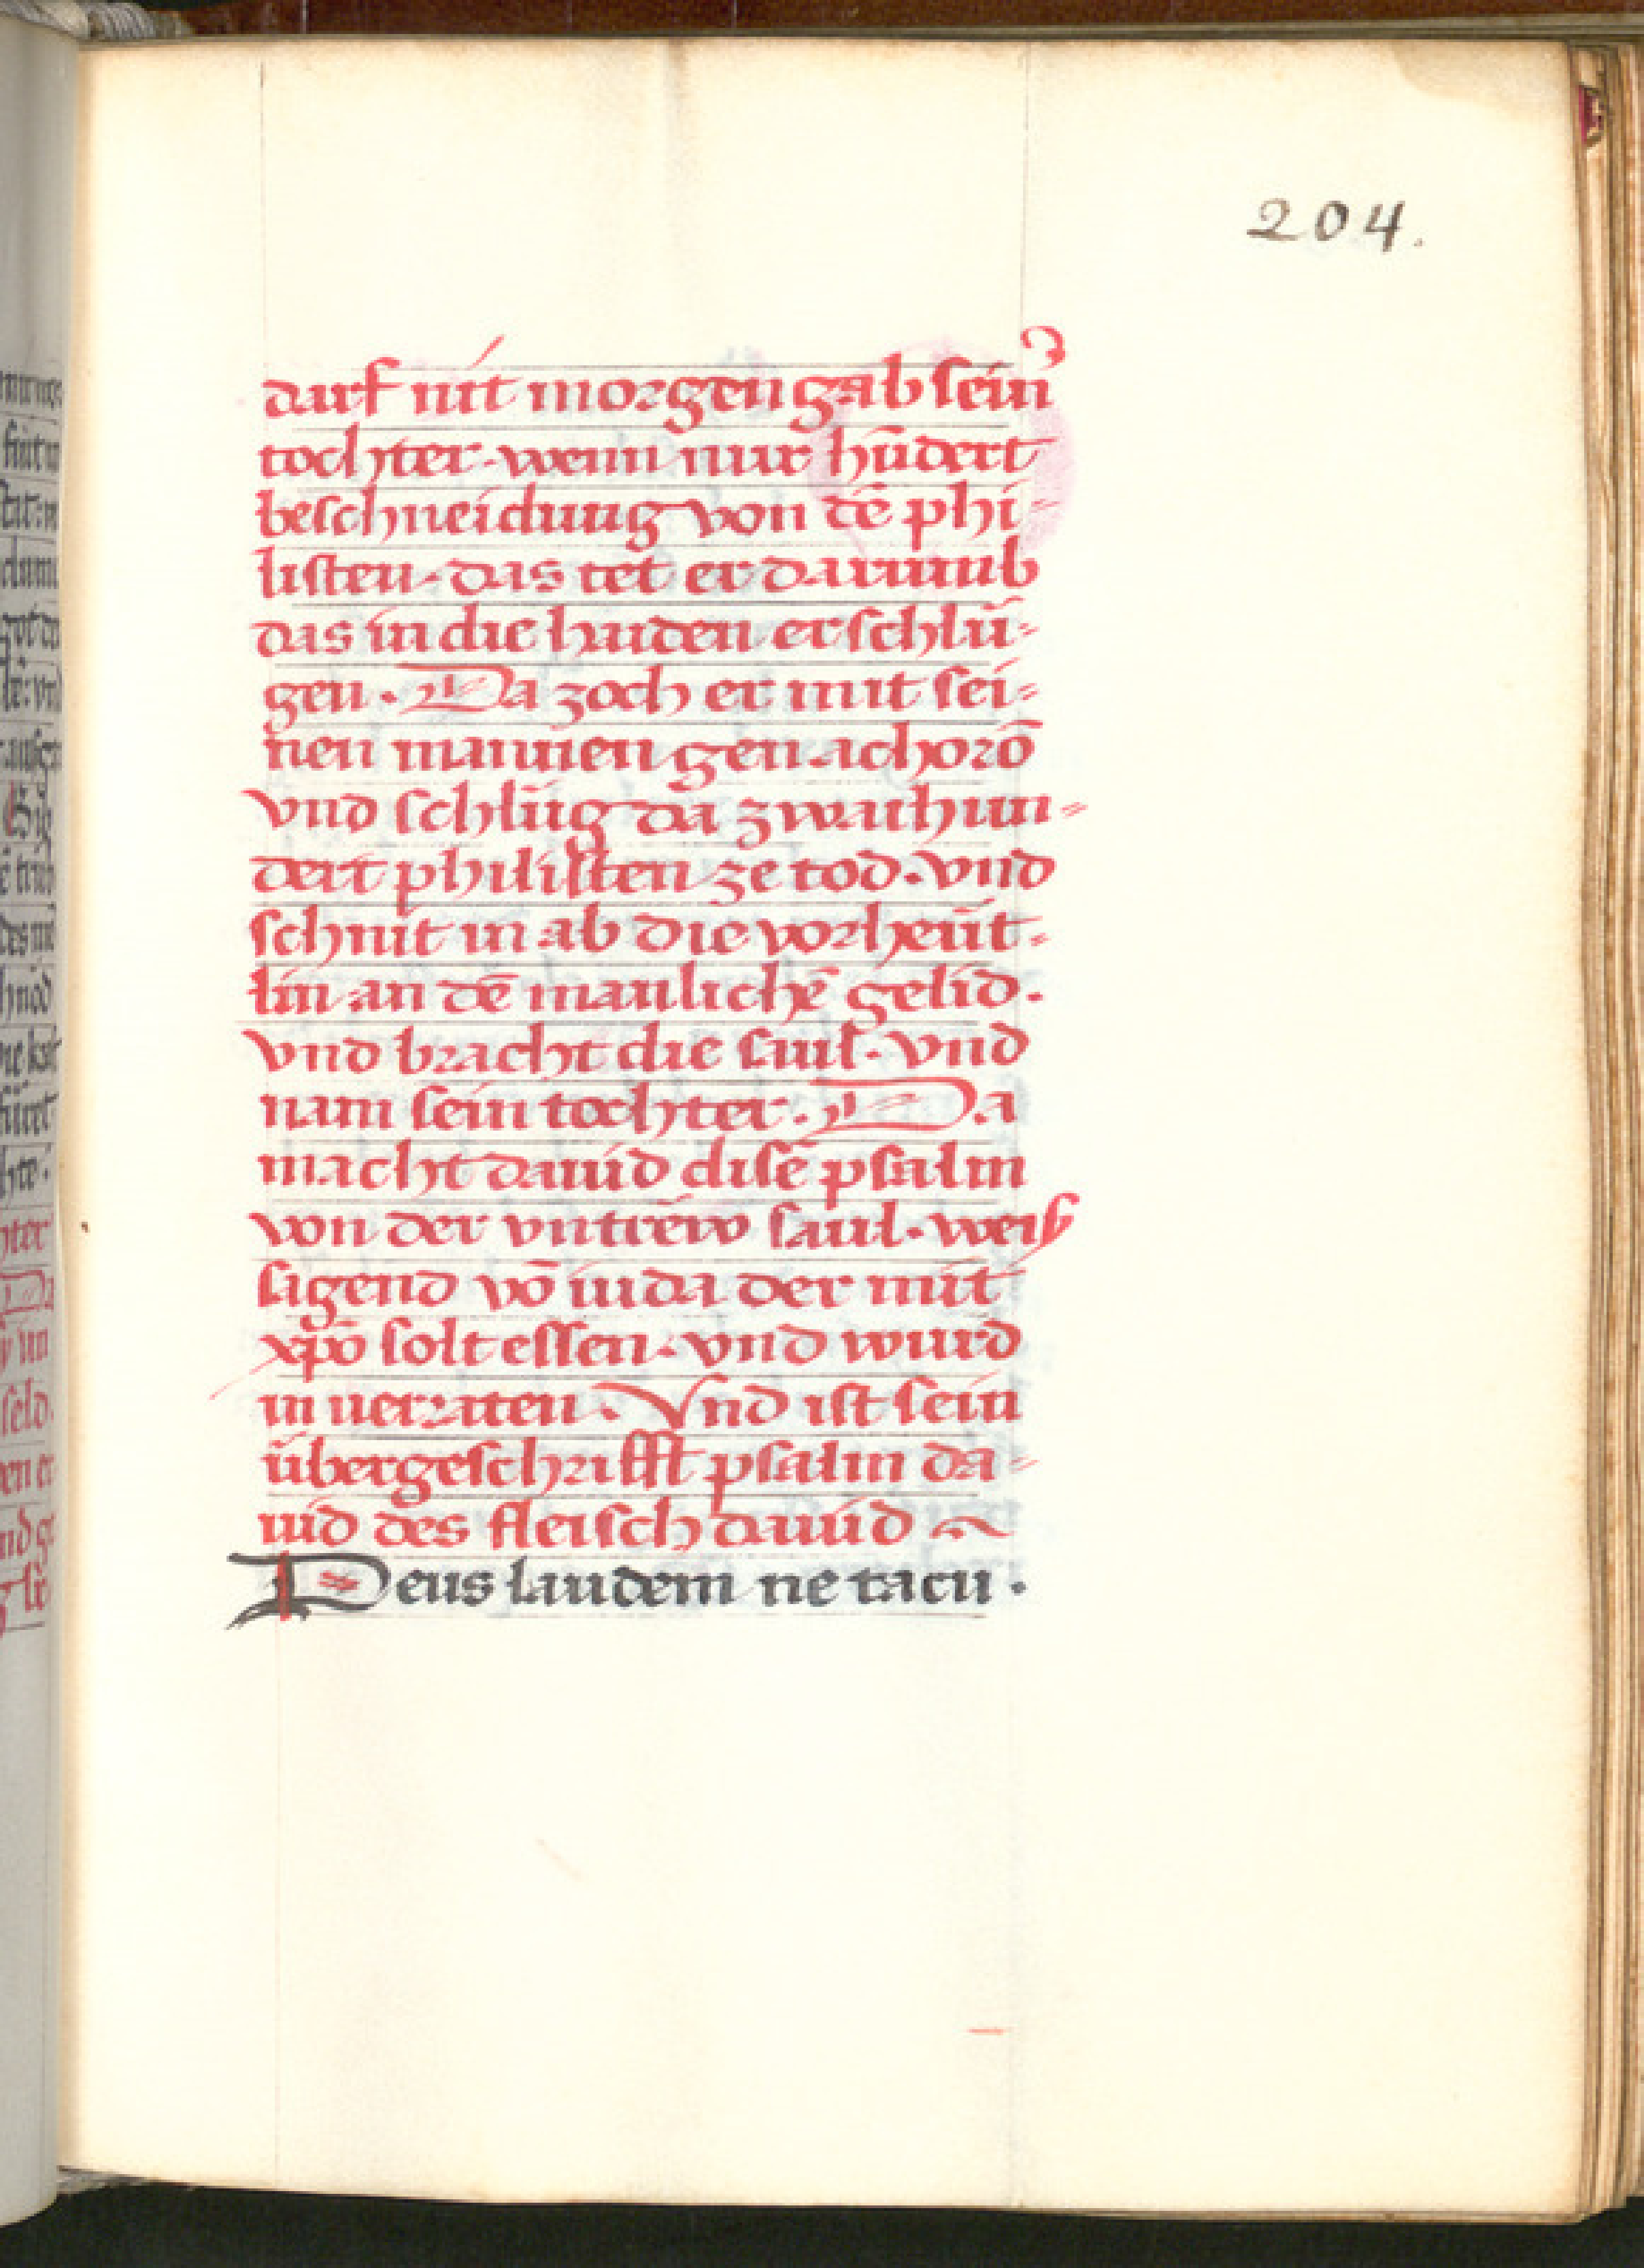 204.
darf nit morgengab sein᷑
tochter. wenn nur hūdert
beschneidung von dē phi-
listen. das tet er darumb
das in die haiden erschlŭ-
gen. Da zoch er mit sei-
nen mannen gen achorō
vnd schlŭg da zwaihun-
dert philisten ze tod. vnd
schnit in ab die vorheŭt-
lin an dē manlichē gelid.
vnd bracht die saul. vnd
nam sein tochter. Da
macht dauid disē psalm
von der vntrew saul. weis
sagend vō iuda der mit
xpō solt essen. vnd wurd
in uerraten. Vnd ist sein
übergeschrifft psalm da-
uid des fleisch dauid
Deus laudem ne tacu.